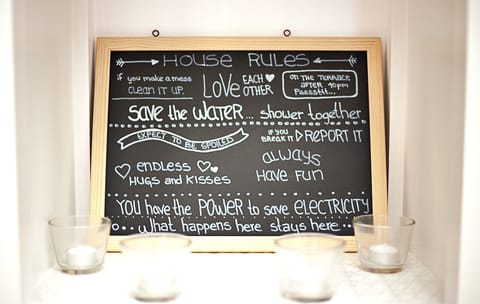 HOUSE RULES
if you make a mess
CLEAN IT UP.
LOVE EACH OTHER
ON THE TERRACE
AFTER 10pm
Psssstt...
SAVE the WATER... shower together
EXPECT TO BE SPOILED
IF YOU
BREAK IT
REPORT IT
ENDLESS
HUGS and KISSES
ALWAYS
HAVE FUN
YOU have the POWER to save ELECTRICITY
What happens here stays here